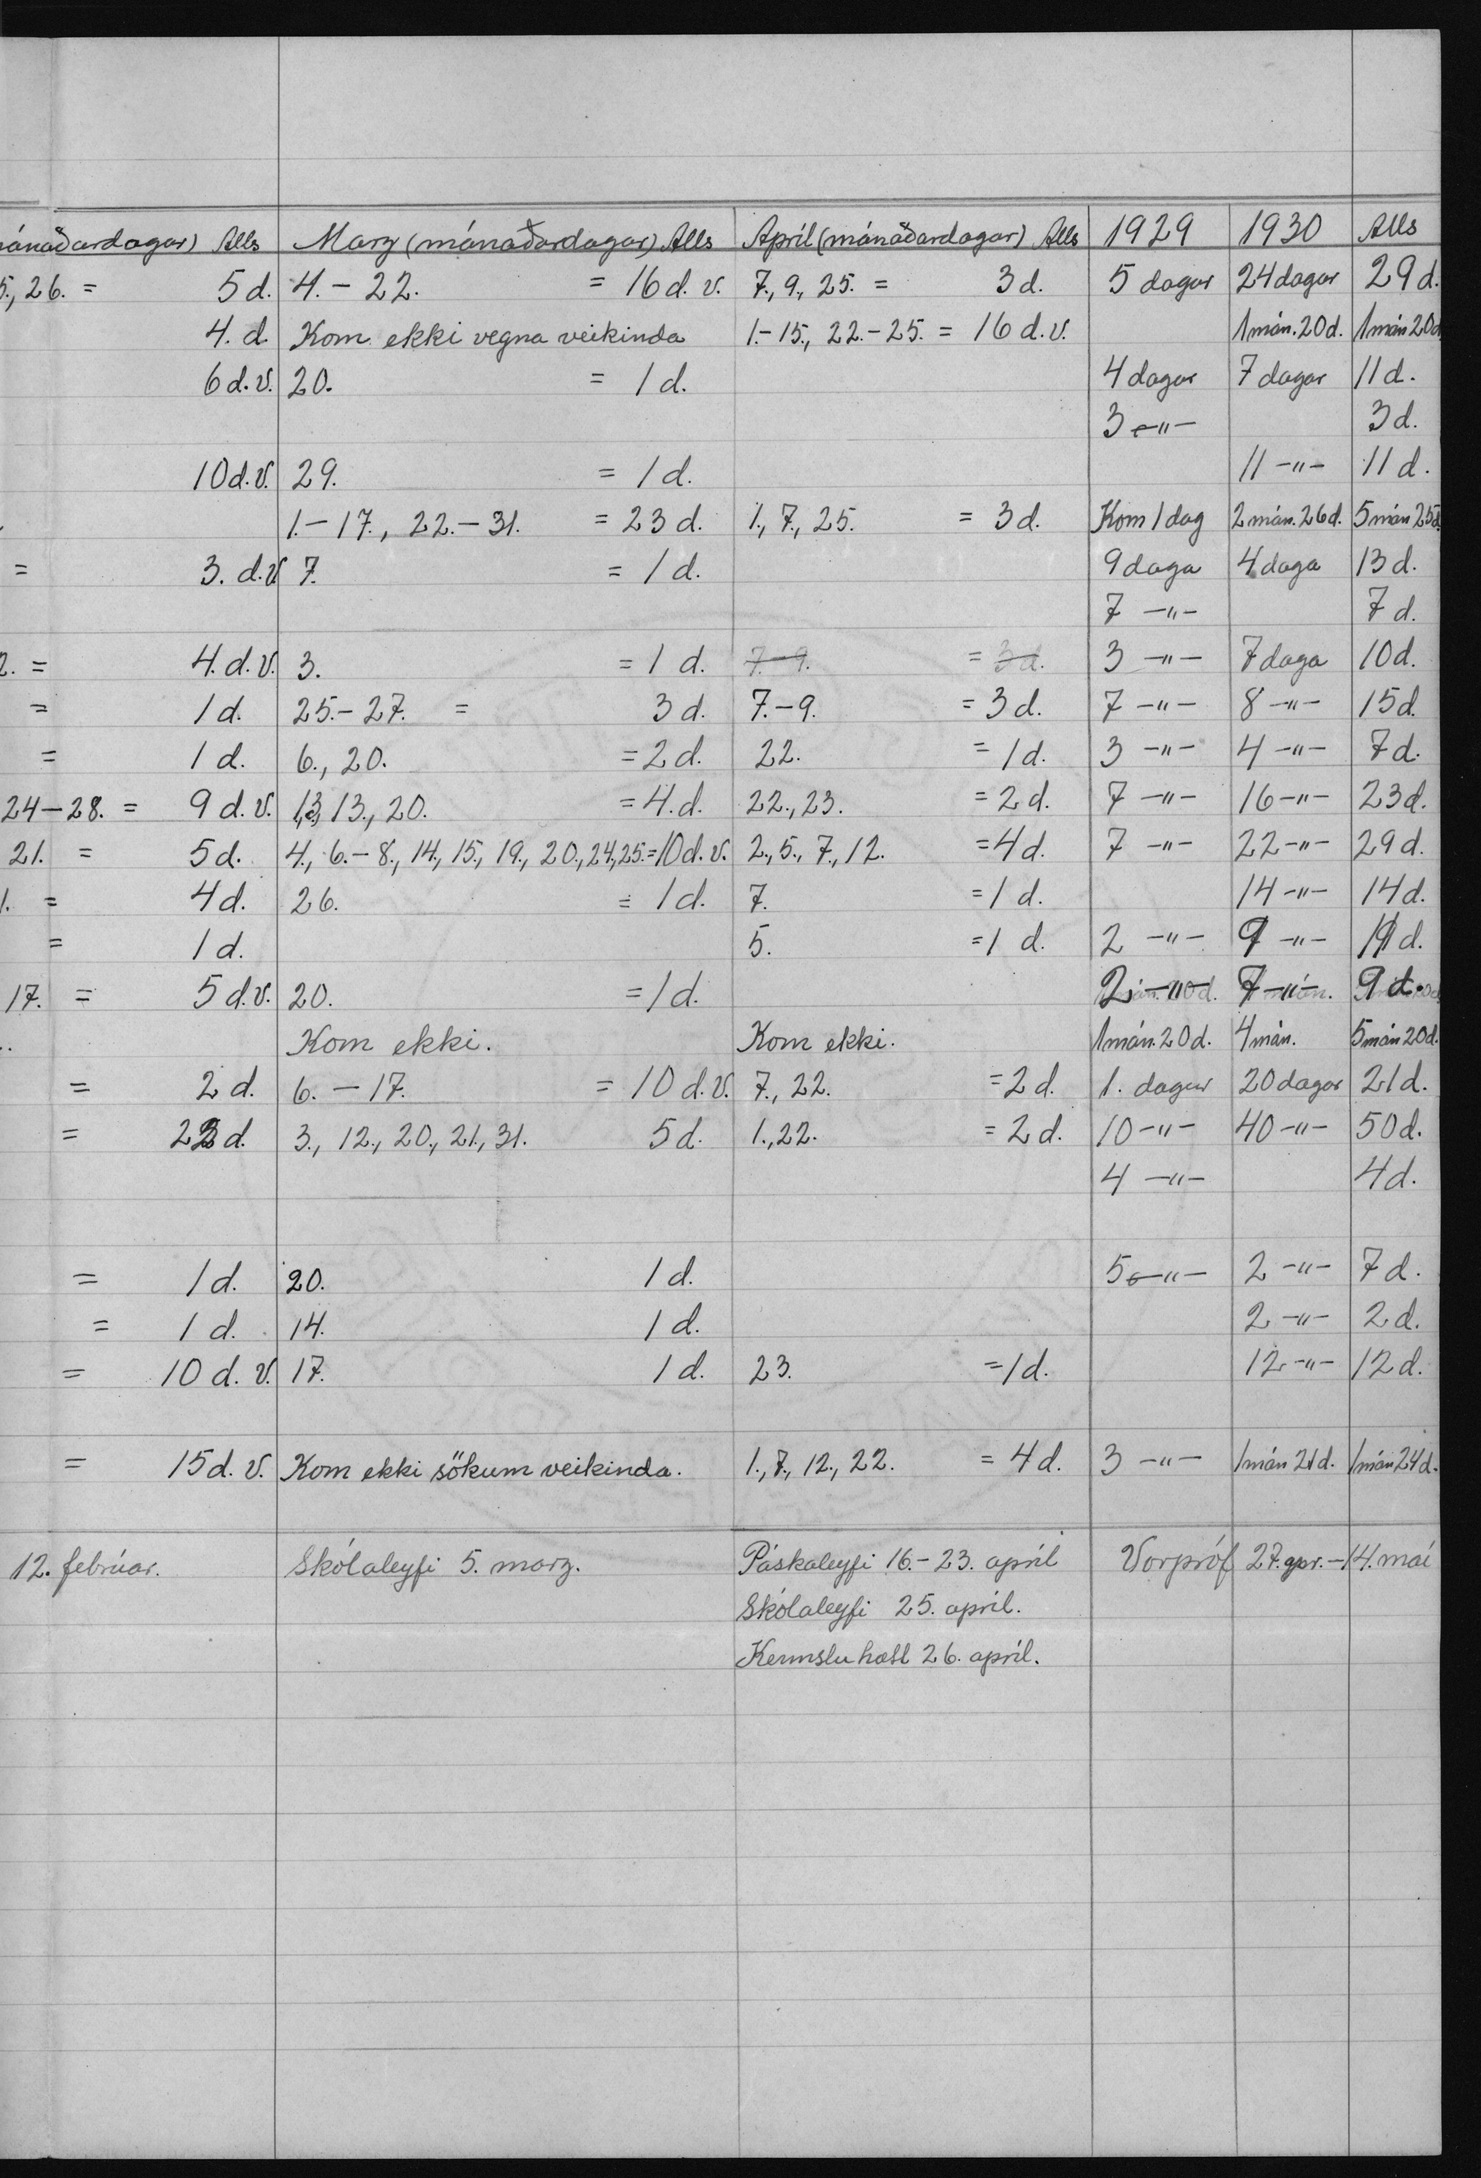 mánaðardagar) Alls Marz (mánaðardagar) Alls Apríl (mánaðardagar) Alls 1929 1930 Alls
5., 26. = 5 d. 4. - 22. = 16 d. v. 7., 9., 25. = 3 d. 5 dagar 24 dagar 29 d.
4. d. Kom ekki vegna veikinda 1. - 15., 22. - 25. = 16 d. v. 1 mán. 20 d. 1 mán 20 d
6 d. v. 20. = 1 d. 4 dagar 7 dagar 11 d.
3 -"- 3 d.
10 d. v. 29. = 1 d. 11 -"- 11 d.
1. - 17., 22. - 31. = 23 d. 1., 7., 25. = 3 d. Kom 1 dag 2 mán. 26 d. 5 mán 25 d.
= 3. d. v 7. = 1 d. 9 daga 4 daga 13 d.
7 -"- 7 d.
2. = 4. d. v. 3. = 1 d. 7. - 9. = 3 d. 3 -"- 7 daga 10 d.
= 1 d. 25. - 27. = 3 d. 7. - 9. = 3 d. 7 -"- 8 -"- 15 d.
= 1 d. 6., 20. = 2 d. 22. = 1 d. 3 -"- 4 -"- 7 d.
24 - 28. = 9 d. v. 1., 3., 13., 20. = 4. d. 22., 23. = 2 d. 7 -"- 16 -"- 23 d.
21. = 5 d. 4., 6. - 8., 14., 15., 19., 20., 24., 25. = 10 d. v. 2., 5., 7., 12. = 4 d. 7 -"- 22 -"- 29 d.
1. = 4 d. 26. = 1 d. 7. = 1 d. 14 -"- 14 d.
= 1 d. 5. = 1 d. 2 -"- 9 -"- 11 d.
17. = 5 d. v. 20. = 1 d. 2 -"- 7 -"- 9 d.
Kom ekki. Kom ekki. 1 mán. 20 d. 4 mán. 5 mán 20 d.
= 2 d. 6. - 17. = 10 d. v. 7., 22. = 2 d. 1. dagur 20 dagar 21 d.
= 22 d. 3., 12., 20., 21., 31. 5 d. 1., 22. = 2 d. 10 -"- 40 -"- 50 d.
4 -"- 4 d.
= 1 d. 20. 1 d. 5 -"- 2 -"- 7 d.
= 1 d. 14. 1 d. 2 -"- 2 d.
= 10 d. v. 17. 1 d. 23. = 1 d. 12 -"- 12 d.
= 15 d. v. Kom ekki sökum veikinda. 1., 7., 12., 22. = 4 d. 3 -"- 1 mán 21 d. 1 mán 24 d.
12. febrúar. Skólaleyfi 5. marz. Páskaleyfi 16. - 23. apríl Vorpróf 27. apr. - 14. maí
Skólaleyfi 25. apríl.
Kennslu hætt 26. apríl.